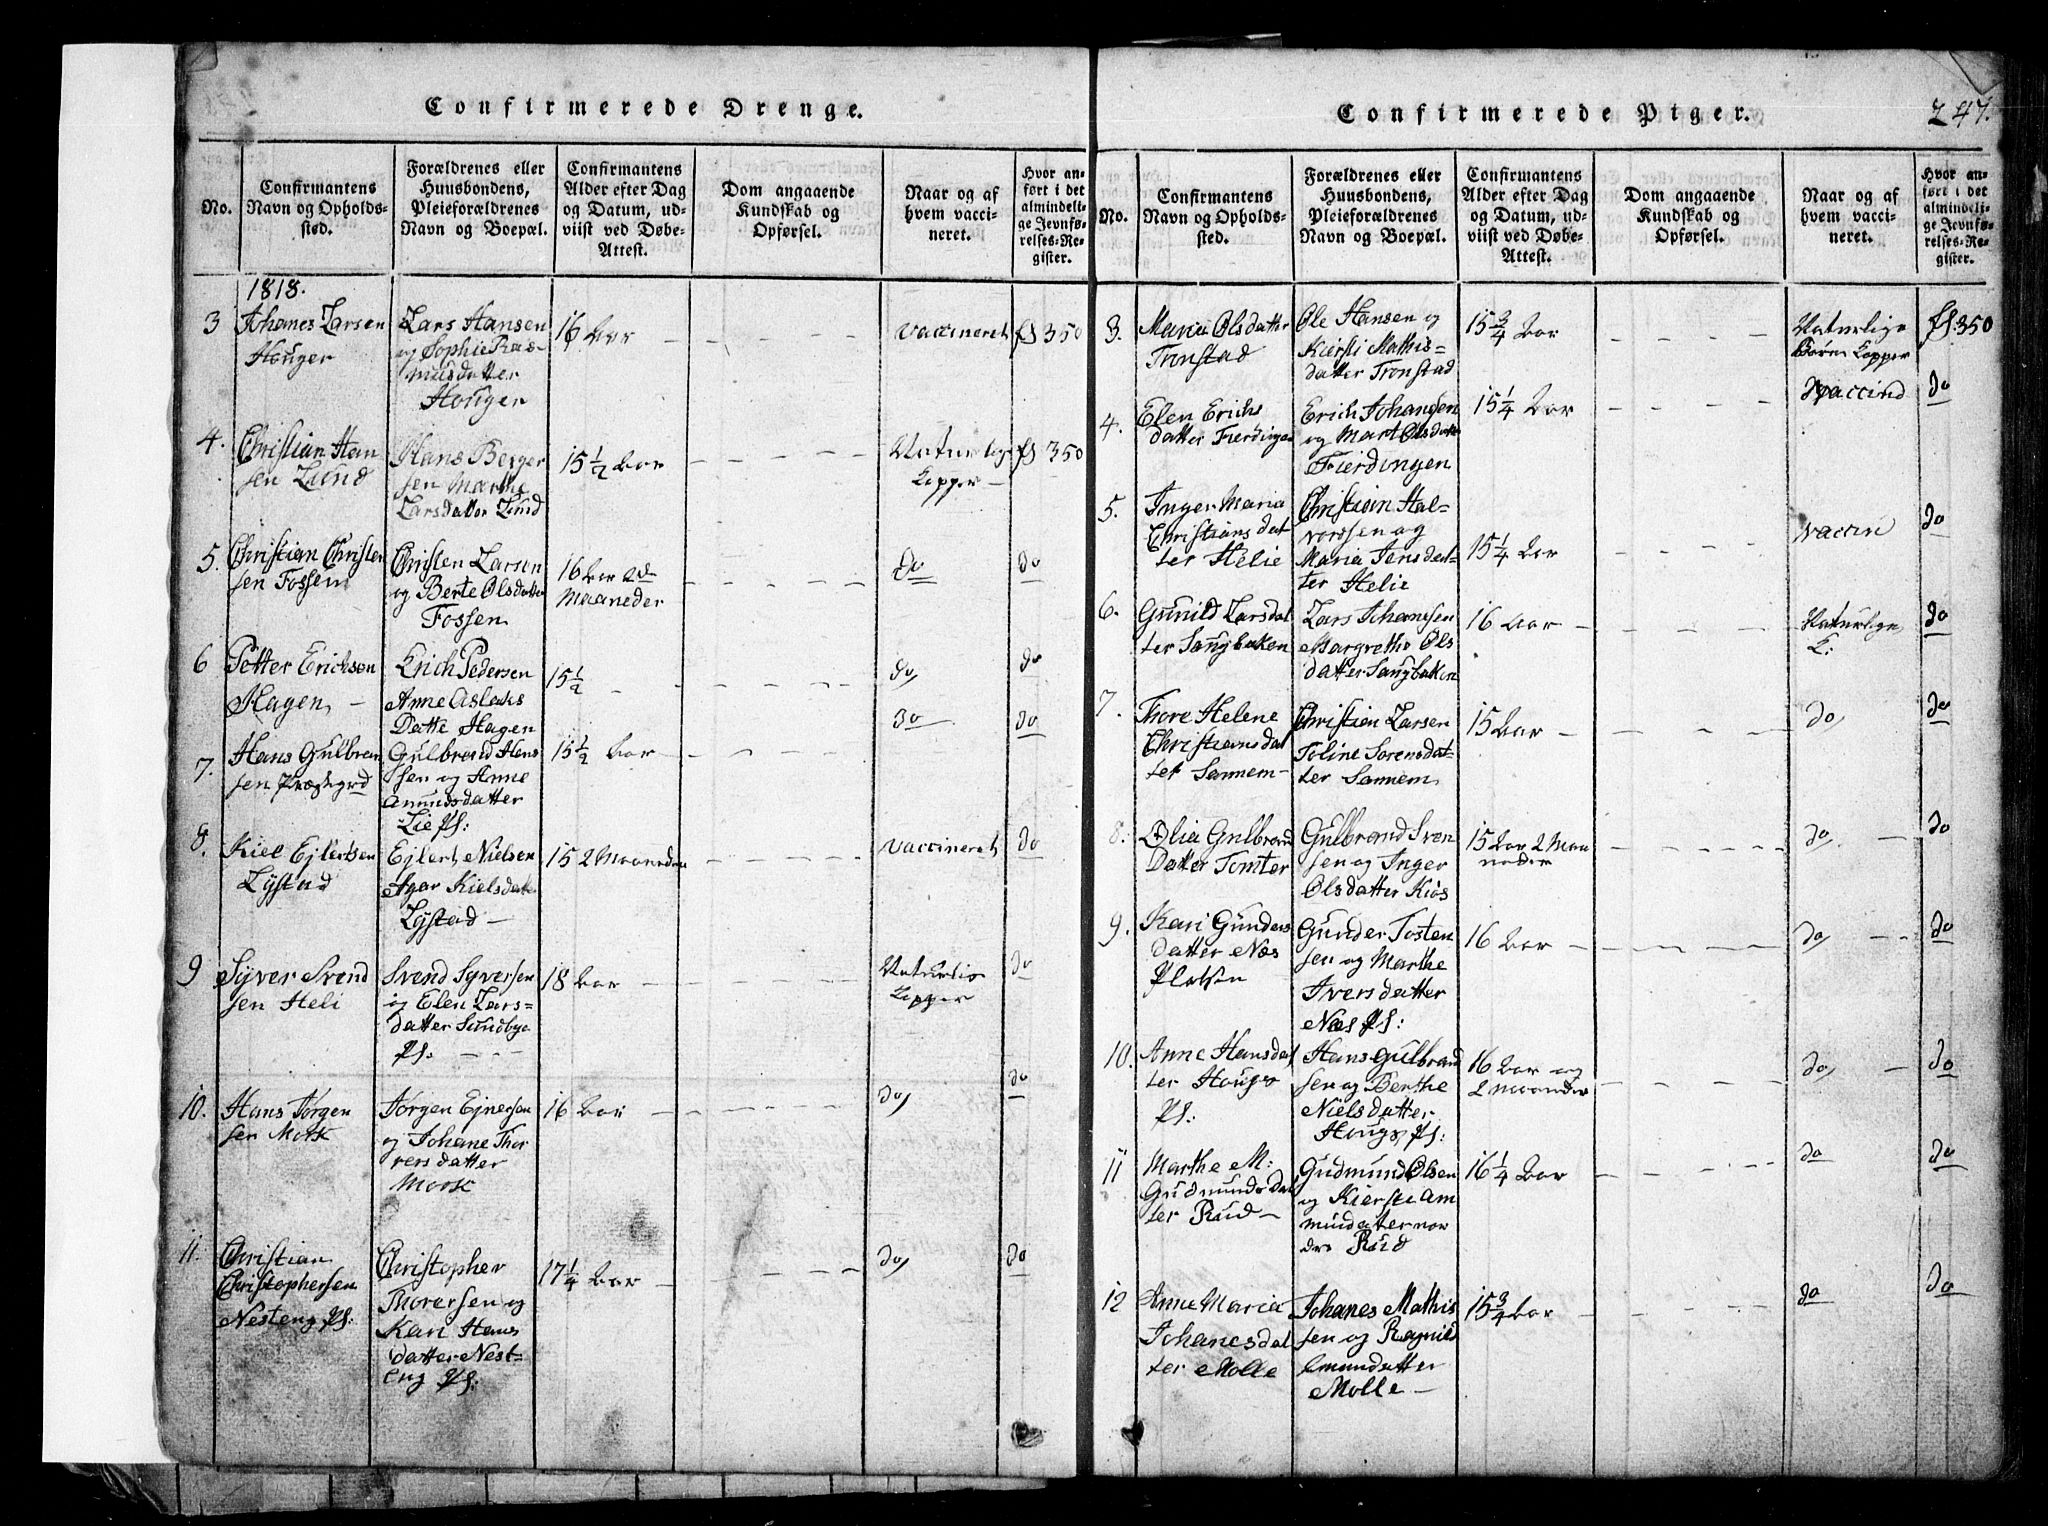 Confirmerede Drenge.
No.
Confirmantens
Navn og Opholds-
sted.
Forældrenes eller
Huusbondens,
Pleieforældrenes
Navn og Boepæl.
Confirmantens
Alder efter Dag
og Datum, ud-
viist ved Døbe-
Attest.
Dom angaaende
Kundskab og
Opførsel.
Naar og af
hvem vacci-
neret.
Hvor an-
ført i det
almindeli-
ge Jevnfø-
relses-Re-
gister.
1818.
3
Johanes Larsen
Houger
Lars Hansen
og Sophie Ras-
musdatter
Houger
16 Aar
vaccineret
fl 350
4.
Christian Han
sen Lund
Hans Berger
sen Marthe
Larsdatter Lund
15 1/2 Aar
Naturlige
Kopper
fl 350
5.
Christian Christen
sen Fossen
Christen Larsen
og Berte Olsdatter
Fossen
16 Aar 2
Maaneder
do
do
6
Petter Erichsen
Hagen
Erich Pedersen
Anne Aslaks
Datte Hagen
15 1/2
do
do
7.
Hans Gulbran
sen Præstgrd
Gulbrand Hans
sen og Anne
Amundsdatter
Lie Pl:
15 1/2 Aar
do
do
8.
Kiel Ejlertsen
Lystad
Ejlert Nielsen
Agar Kielsdatte
Lystad
15 2 Maaneder
vaccineret
do
9
Syver Svend
sen Heli
Svend Syversen
og Elen Lars-
datter Sundbye
Pl:
18 Aar
Naturlig
Kopper
do
10.
Hans Jørgen
sen Mork
Jørgen Ejnersen
og Johane Thor
versdatter
Mork
16 Aar
do
do
11.
Christian
Christophersen
Nesteng Pl:
Christopher
Thorersen og
Kari Hans
datter Nest-
Eng Pl:
17 1/4 Aar
do
do
Confirmerede Piger.
247.
No.
Confirmantens
Navn og Opholds-
sted.
Forældrenes eller
Huusbondens,
Pleieforældrenes
Navn og Boepæl.
Confirmantens
Alder efter Dag
og Datum, ud-
viist ved Døbe-
Attest.
Dom angaaende
Kundskab og
Opførsel.
Naar og af
hvem vacci-
neret.
Hvor an-
ført i det
almindeli-
ge Jevnfø-
relses-Re-
gister.
3.
Maria Olsdatter
Tronstad
Ole Hansen og
Kiersti Mathis-
datter Tronstad
15 3/4 Aar
Naturlige
Børne Kopper
fl. 350
4.
Elen Erichs
datter Fierdingen
Erich Johansen
og Mart Olsdatte
Fierdingen
15 1/4 Aar
Vaccind
do
5.
Inger Maria
Christians dat
ter Helie
Christian Hal-
vorssen og
Maria Jensdat
ter Helie
15 1/4 Aar
vaccin
do
6.
Gunild Larsdat
ter Saugbaken
Lars Johansen
Margrethe Ols
datter Saugbaken
16 Aar
Naturlige
K:
do
7.
Thore Helene
Christiansdat
ter Sannem
Christian Larsen
Toline Sørensdat-
ter Sannem
15 Aar
do
do
8.
Olia Gulbrand
Datter Tomter
Gulbrand Sven
sen og Inger
Olsdatter Kiøs
15 Aar 2 Maa
neder
do
do
9.
Kari Gunders
datter Næs
Platsen
Gunder Tosten
sen og Marthe
Iversdatter
Næs Pl:
16 Aar
do
do
10.
Anne Hansdat
ter Hougs
Pl:
Hans Gulbrand
sen og Berthe
Nielsdatter
Hougs Pl:
16 Aar og
2 Maaneder
do
do
11
Marthe M:
Gudmundsdat
ter Rud
Gudmund Olsen
og Kierste Am
mundater nor
dre Rud
16 1/4 Aar
do
do
12
Anne Maria
Johanesdat
ter Molle
Johanes Mathis
sen og Ragnild
Emundatter
Molle
15 3/4 Aar
do
do